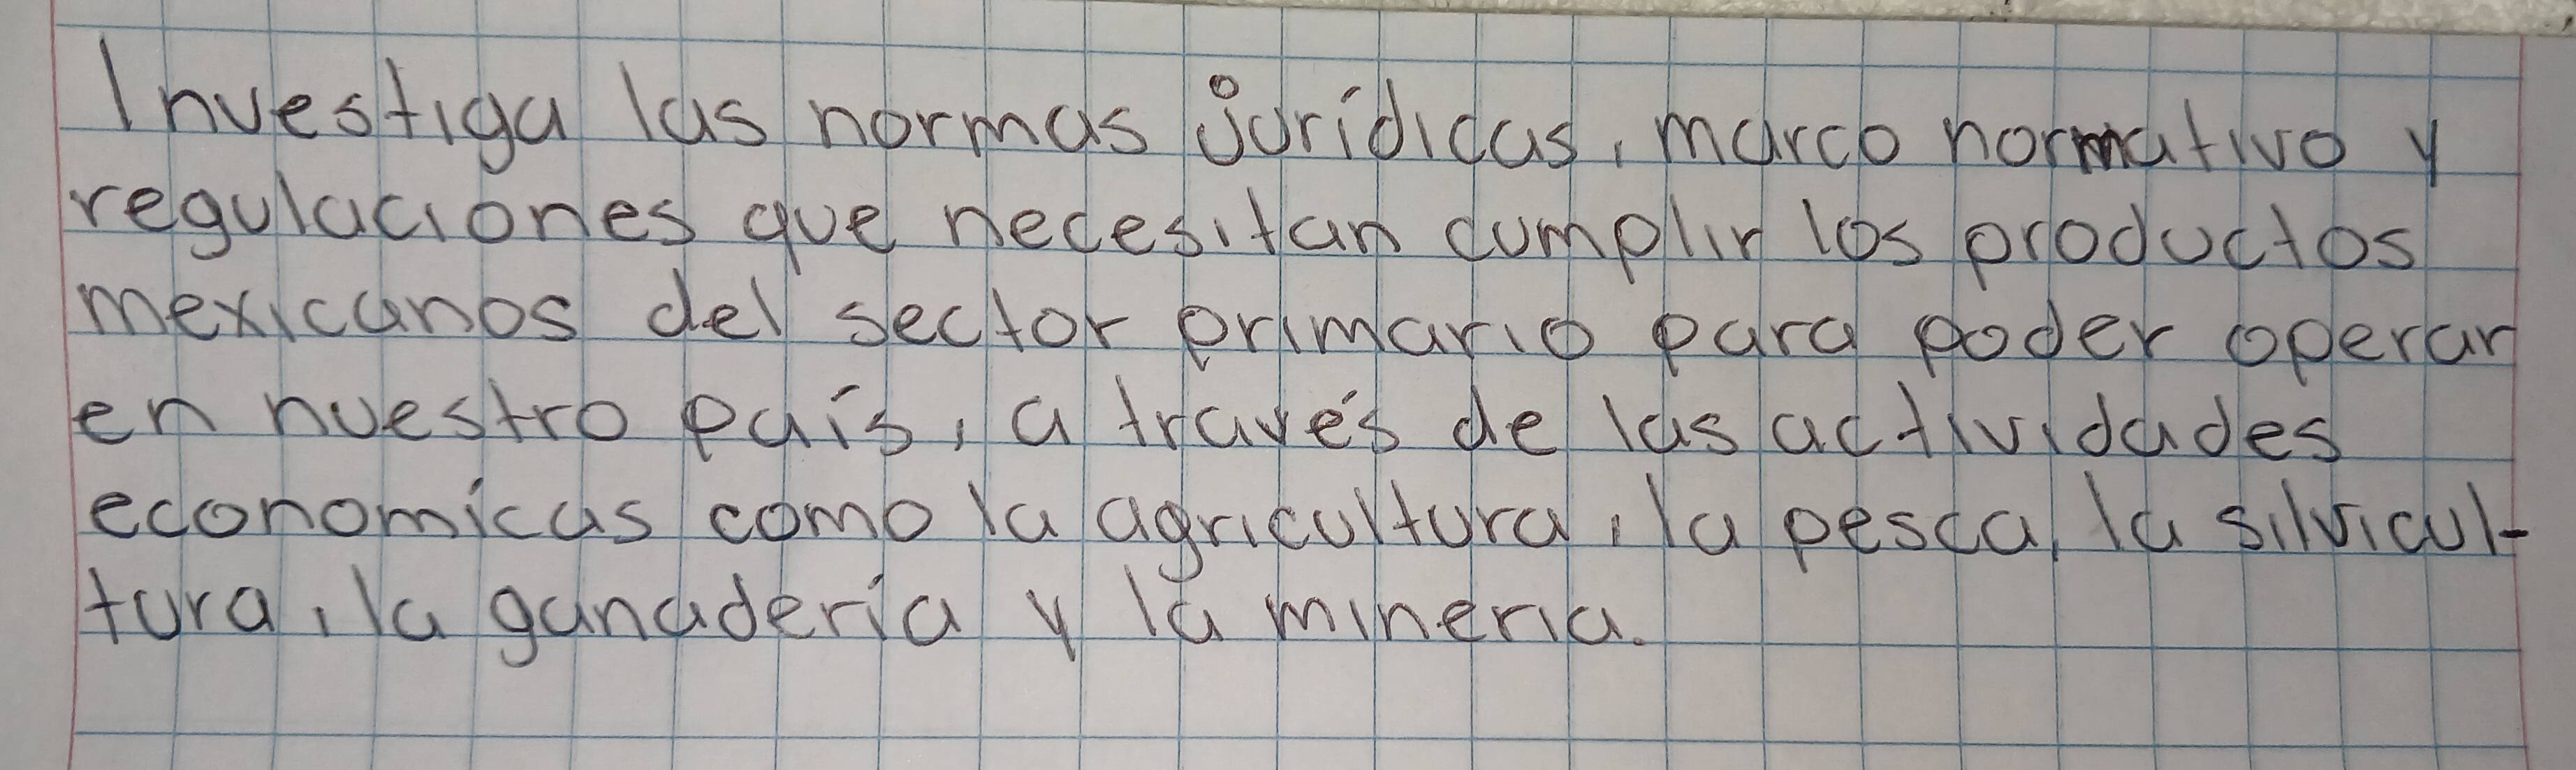 Investiga las normas jurídicas, marco normativo y
regulaciones que necesitan cumplir los productos
mexicanos del sector primario para poder operar
en nuestro país, a través de las actividades
economícas como la agricultura, la pesca, la silvicul-
tura, la ganadería y la mineria.